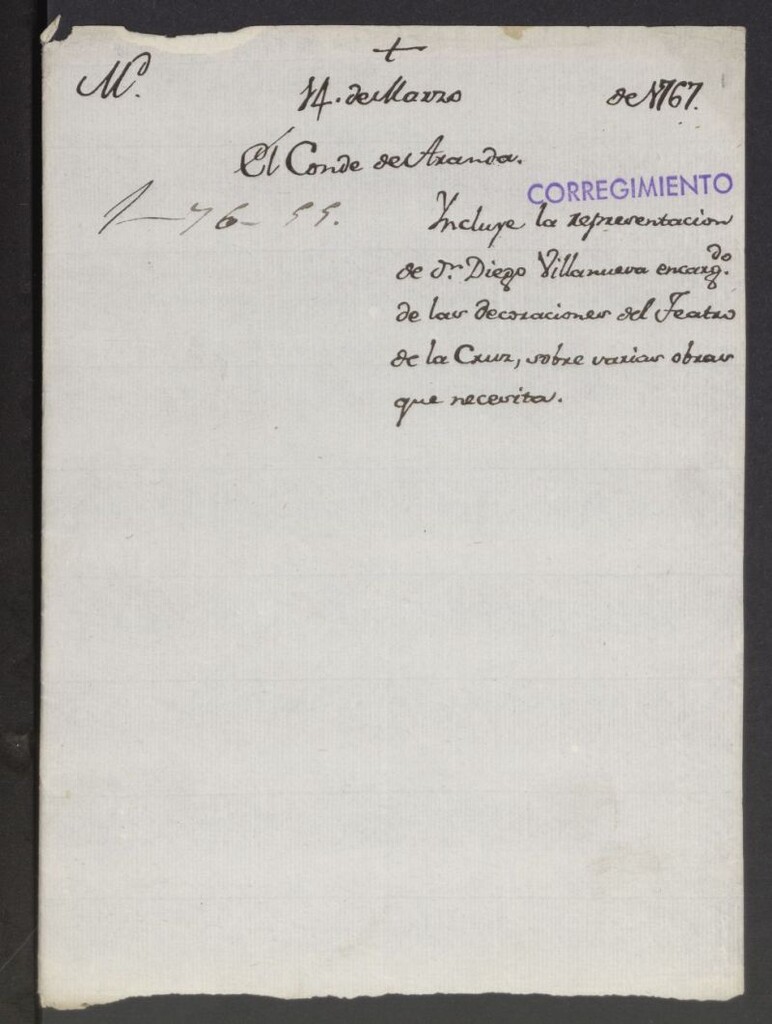 +
M.d 14. de Marzo de 1767.
El Conde de Aranda.
CORREGIMIENTO
1-76-55. Incluye la representacion
de dn. Diego Villanueva encargdo.
de las decoraciones del Teatro
de la Cruz, sobre varias obras
que necesita.